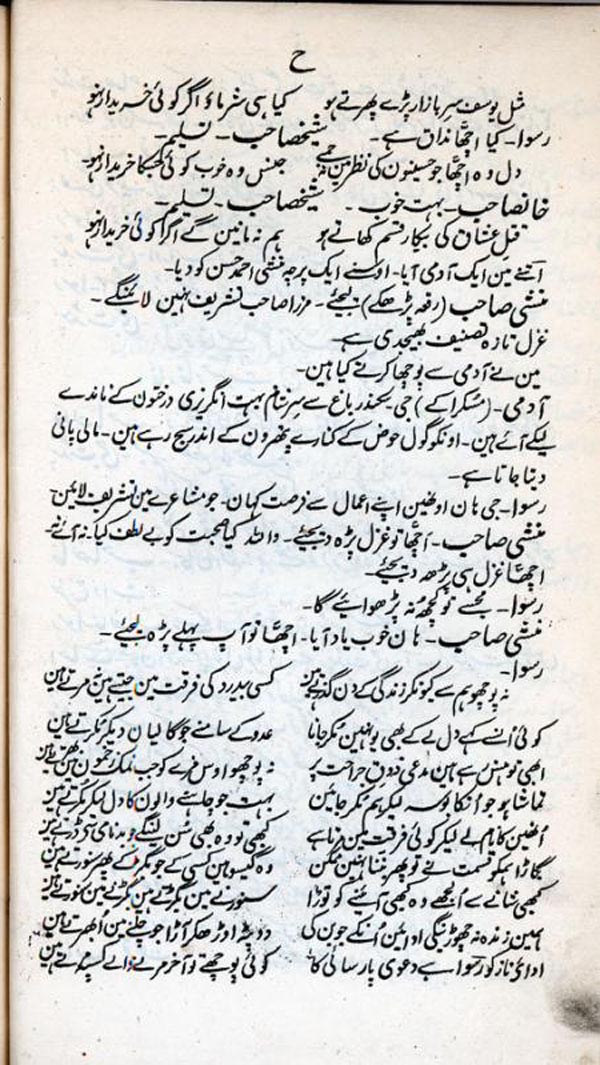 ح
مثل یوسف سرِ بازار پڑے پھرتے ہو کیا ہی شرماؤ اگر کوئی خریدار نہو
رسوا۔ کیا اچھّا مذاق ہے۔ شیخصاحب۔ تسلیم۔
دل وہ اچھّا جو حسینون کی نظر مین جنس وہ خوب کوئی جسکا خریدار نہو
خانصاحب۔ بہت خوب۔ شیخصاحب۔ تسلیم۔
قتلِ عشاق کی بیکار قسم کھاتے ہو ہم نہ مانین گے اگر کوئی خریدار نہو
اتنے مین ایک آدمی آیا۔ اوسنے ایک پرچہ منشی احمد حسن کو دیا۔
منشی صاحب (رقعہ پڑھکے) لیجئے۔ مرزا صاحب تشریف نہین لائینگے۔
غزل تازہ تصنیف بھیجدی ہے۔
مین نے آدمی سے پوچھا کرتے کیا ہین۔
آدمی۔ (مسکرا کے) جی سکندر باغ سے سرِ شام بہت انگریزی درختون کے ناندے
لیکے آئے ہین۔ اونکو گول حوض کے کنارے پتھرون کے اندر سج رہے ہین۔ مالی پانی
دیتا جاتا ہے۔
رسوا۔ جی ہان اونھین اپنے اعمال سے فرصت کہان۔ جو مشاعرے مین تشریف لائین۔
منشی صاحب۔ اچھّا تو غزل پڑھ دیجئے۔ واللہ کیا صحبت کو بے لطف کیا۔ نہ آئے نہ
اچھّا غزل ہی پڑھ دیجئے۔
رسوا۔ مجھسے تو کچھ نہ پڑھوایئے گا۔
منشی صاحب۔ ہان خوب یاد آیا۔ اچھّا تو آپ پہلے پڑہ لیجئے۔
رسوا۔
نہ پوچھو ہم سے کیونکر زندگی کے دن گذرتے ہین کسی بیدرد کی فرقت مین جیتے ہین نہ مرتے ہین
کوئی اُنسے کہے دل لے کے بھی یونہین مکر جانا عدو کے سامنے جو گالیان دیکر مکرتے ہین
ابھی تو ہنس رہے ہین مدعی ذوقِ جراحت پر نہ پوچھو اوس مزے کو جب نمک زخمون مین بھرتے ہین
تماشا ہو جو اُنکا بوسہ لیکر ہم مکر جائین بہت جو چاہنے والون کا دل لیکر مکرتے ہین
اُنھین کا نام لے لیکر کوئی فرقت مین مرتا ہے کبھی تو وہ بھی سُن لینگے جو بدنامی سے ڈرتے ہین
بگاڑا ہمکو قسمت نے تو پھر بننا نہین ممکن وہ گیسو ہین کسی کے جو بگڑ کے پھر سنورتے ہین
کبھی شانے سے اُلجھے وہ کبھی آئینے کو توڑا سنورنے مین بگڑتے ہین بگڑنے مین سنورتے ہین
ہمین زندہ نہ چھوڑینگی ادائین اُنکے جوبن کی دوپٹہ اوڑھکر آڑا جو چلنے مین اُبھرتے ہین
ادائے ناز کو رسوا ہے دعوی پارسائی کا کوئی پوچھے تو آخر مرنے والے کسپہ مرتے ہین